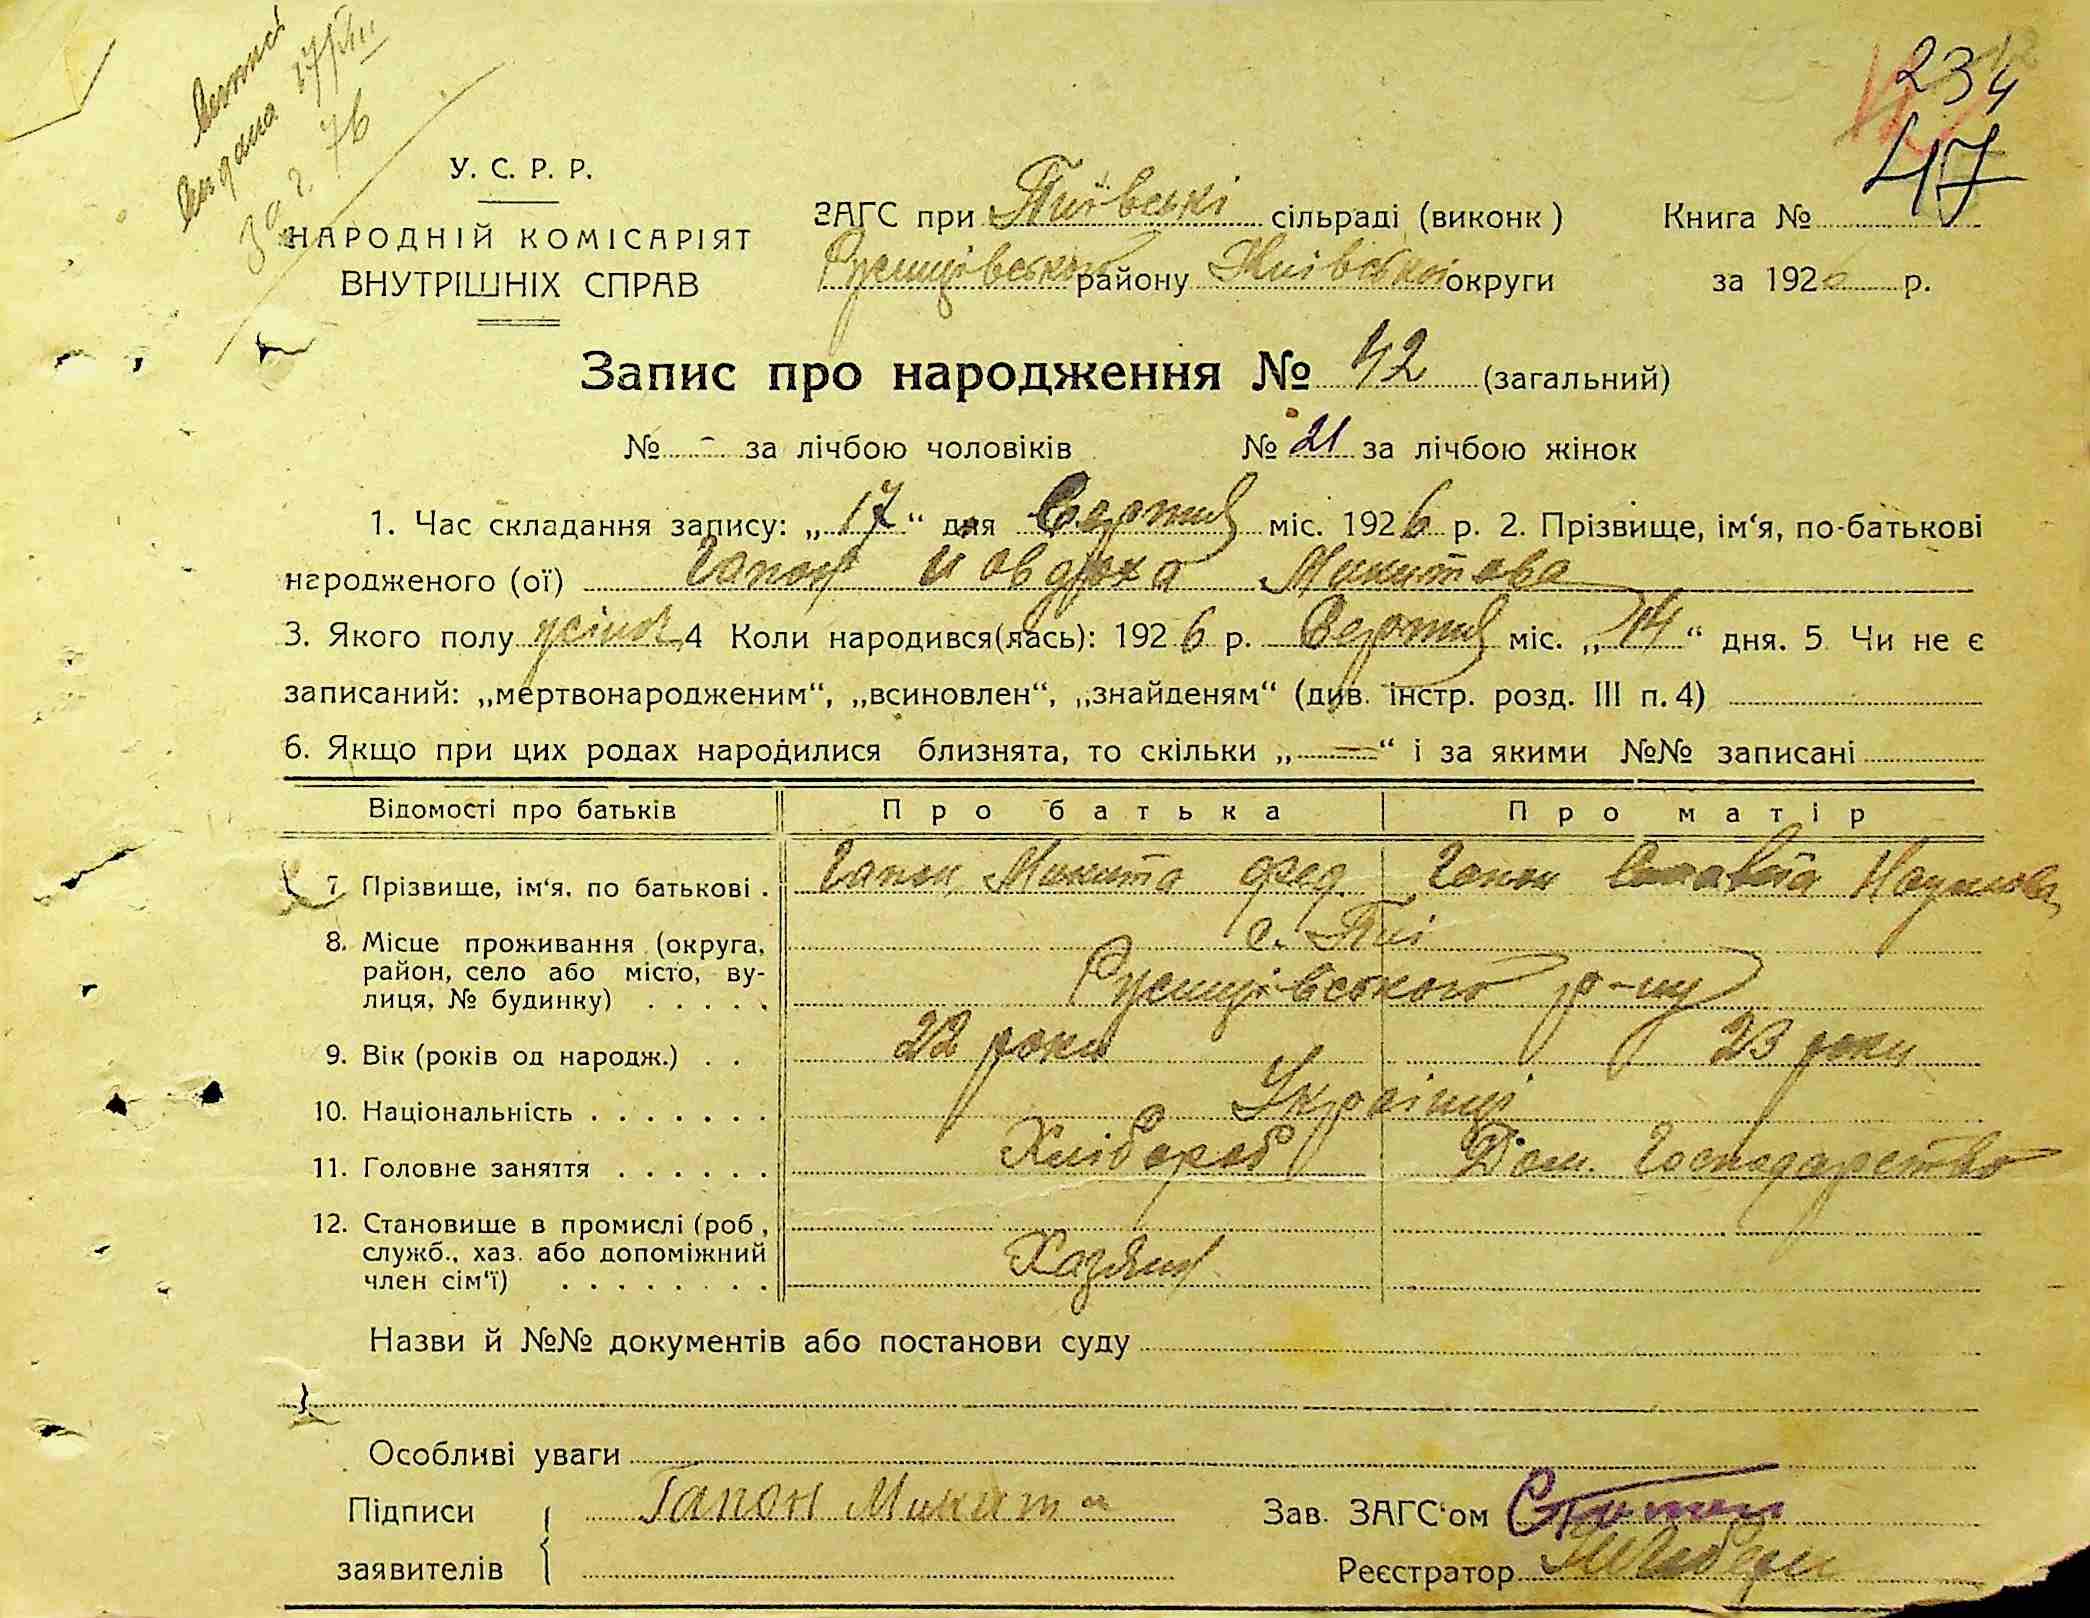 видана
за г. 76
234
47
У. С. Р. Р.
НАРОДНІЙ КОМІСАРІЯТ
ВНУТРІШНІХ СПРАВ
ЗАГС при Пиївські сільраді (виконк)
Ржищівського району Київської округи
Книга №
за 1926 р.
Запис про народження № 42 (загальний)
№ - за лічбою чоловіків № 21 за лічбою жінок
1. Час складання запису: „17“ дня Серпня міс. 1926 р. 2. Прізвище, ім‘я, по-батькові
народженого (ої) Гапон Йовдоха Микитова
3. Якого полу жіноч 4 Коли народився(лась): 1926 р. Серпня міс. „14“ дня. 5. Чи не є
записаний: „мертвонародженим“, „всиновлен“, „знайденям“ (див. інстр. розд. III п. 4)
6. Якщо при цих родах народилися близнята, то скільки „—“ і за якими №№ записані
Відомості про батьків Про батька Про матір
7. Прізвище, ім‘я, по батькові . Гапон Микита Фед. Гапон Наумова
8. Місце проживання (округа, с. Пиї
район, село або місто, ву-
лиця, № будинку) . . . . . Ржищівського р-ну
9. Вік (років од народж.) . . 22 роки 23 роки
10. Національність . . . . . . . Українці
11. Головне заняття . . . . . . Хлібороб Дом. Господарство
12. Становище в промислі (роб.,
служб., хаз. або допоміжний Хазяїн
член сім‘ї) . . . . . . . .
Назви й №№ документів або постанови суду
Особливі уваги
Підписи Гапон Микита
заявителів
Зав. ЗАГС‘ом
Реєстратор